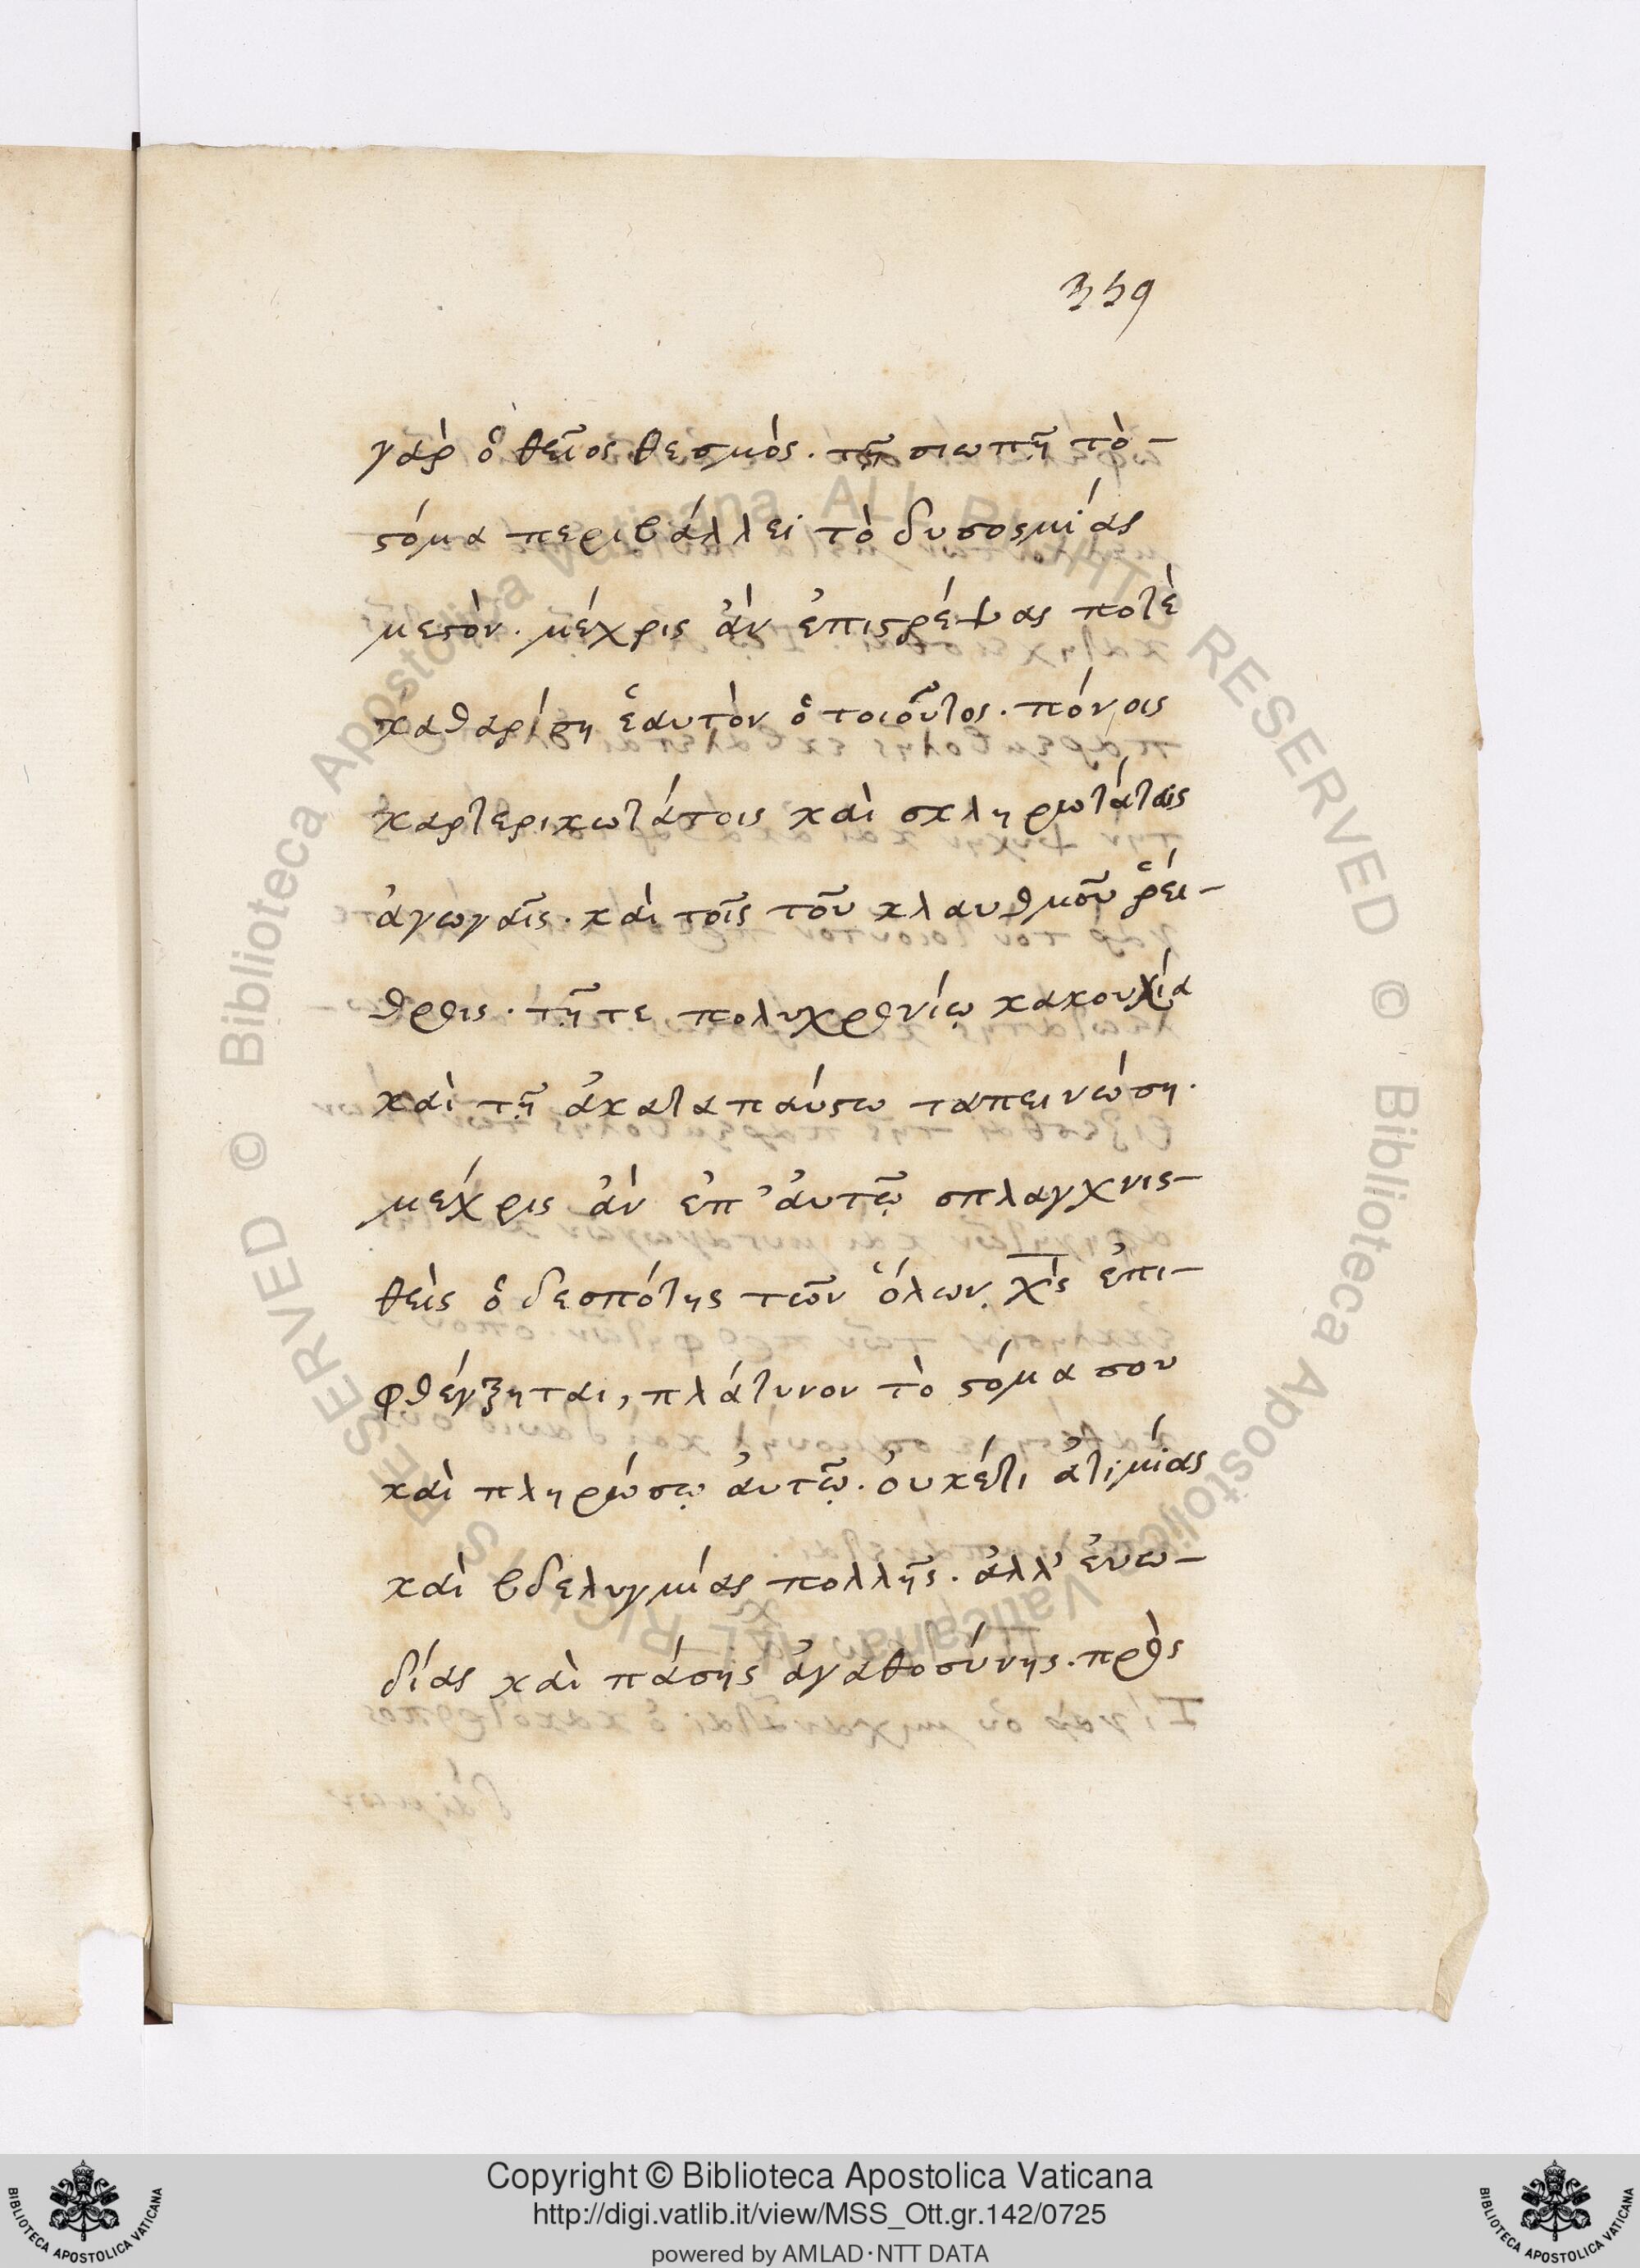 359
γὰρ ὁ θεῖος θεσμὸς. τῇ σιωπῇ τὸ-
ϛόμα περιβάλλει τὸ δυσοσμίας
μεϛόν. μέχρις ἂν ἐπιϛρέψας ποτὲ
καθαρίσῃ ἑαυτὸν ὁ τοιοῦτος. πόνοις
καρτερικωτάτοις καὶ σκληρωτάταις
ἀγωγαῖς. καὶ τοῖς τοῦ κλαυθμοῦ ῥεί-
θροις. τῇ τε πολυχρονίῳ κακουχία
καὶ τῇ ἀκαταπαύϛω ταπεινώση.
μέχρις ἂν ἐπ' ἀυτῷ σπλαγχνισ-
θεὶς ὁ δεσπότης τῶν ὅλων χς ἐπι-
φθέγξηται, πλάτυνον τὸ ϛόμα σου
καὶ πληρώσῳ ἀυτῷ. ὀυκέτι ἀτιμίας
καὶ βδελυγμίας πολλῆς. ἀλλ' ἐυω-
δίας καὶ πάσης ἀγαθοσύνης. πρὸς
Copyright © Biblioteca Apostolica Vaticana
http://digi.vatlib.it/view/MSS_Ott.gr.142/0725
powered by AMLAD·NTT DATA
BIBLIOTECA APOSTOLICA VATICANA
BIBLIOTECA APOSTOLICA VATICANA
© Biblioteca Apostolica Vaticana ALL RIGHTS RESERVED © Biblioteca Apostolica Vaticana ALL RIGHTS RESERVED